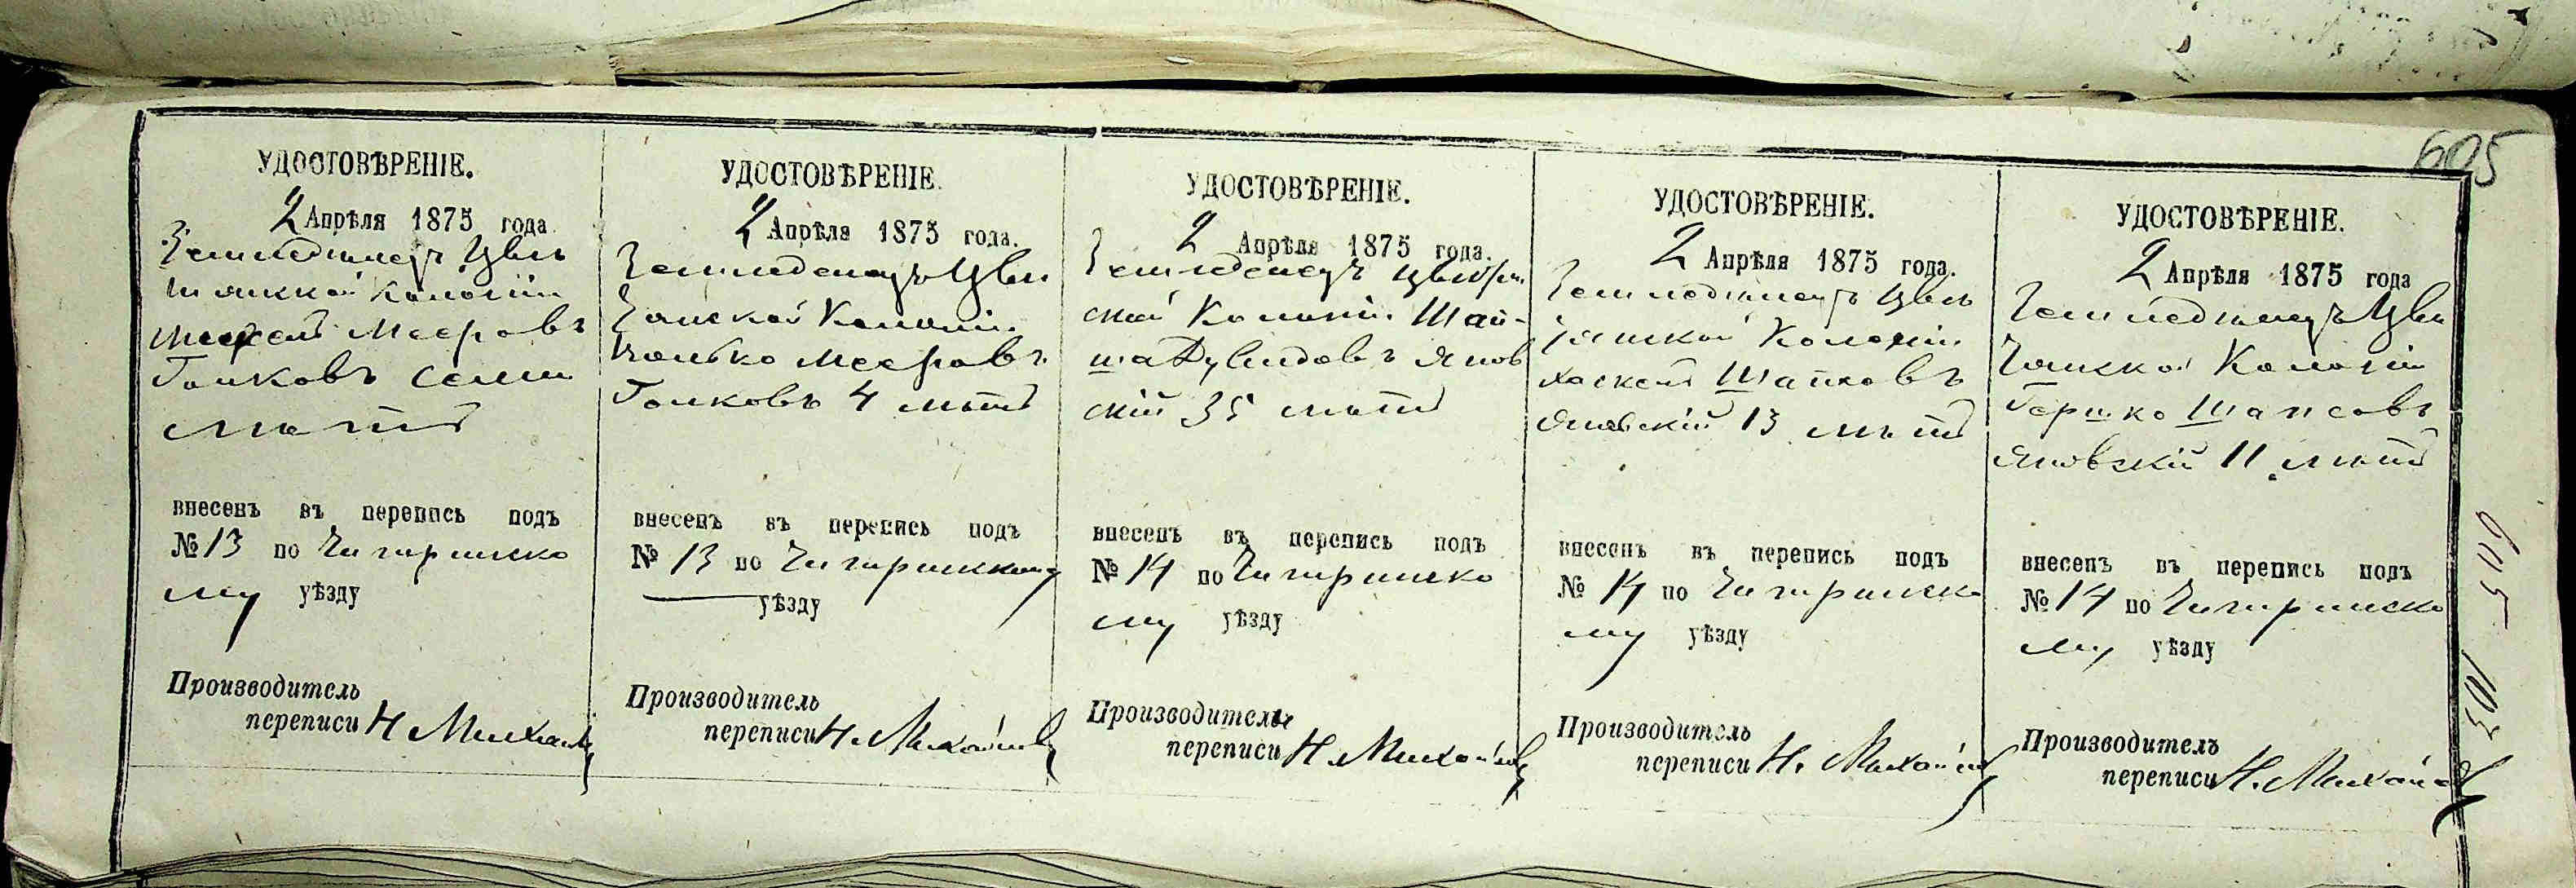 605
УДОСТОВѢРЕНІЕ.
2 Апрѣля 1875 года
Земледѣлецъ Цвѣ
Колоніи
Мееровъ
Голковъ семи
лѣтъ
внесенъ въ перепись подъ
№ 13 по Чигиринско
му уѣзду
Производитель
переписи Н Михай
УДОСТОВѢРЕНІЕ.
2 Апрѣля 1875 года.
Земледелецъ Цвѣ
Колоніи
Мееровъ
Голковъ 4 лѣтъ
внесенъ въ перепись подъ
№ 13 по Чигиринскому
уѣзду
Производитель
переписи Н. Михай
УДОСТОВѢРЕНІЕ.
2 Апрѣля 1875 года.
Земледелецъ
ской Колоніи Шап-
са Дувидовъ Янов
скій 35 лѣтъ
внесенъ въ перепись подъ
№ 14 по Чигиринско
му уѣзду
Производитель
переписи Н Михай
УДОСТОВѢРЕНІЕ.
2 Апрѣля 1875 года.
Земледѣлецъ Цвѣ
Колоніи
Хаскель Шапсовъ
Яновскій 13 лѣтъ
внесенъ въ перепись подъ
№ 14 по Чигиринско
му уѣзду
Производитель
переписи Н. Михай
УДОСТОВѢРЕНІЕ.
2 Апрѣля 1875 года
Земледѣлецъ Цвѣ
Колоніи
Гершко Шапсовъ
Яновскій 11 лѣтъ
внесенъ въ перепись подъ
№ 14 по Чигиринско
му уѣзду
Производитель
переписи Н. Михай
605 103